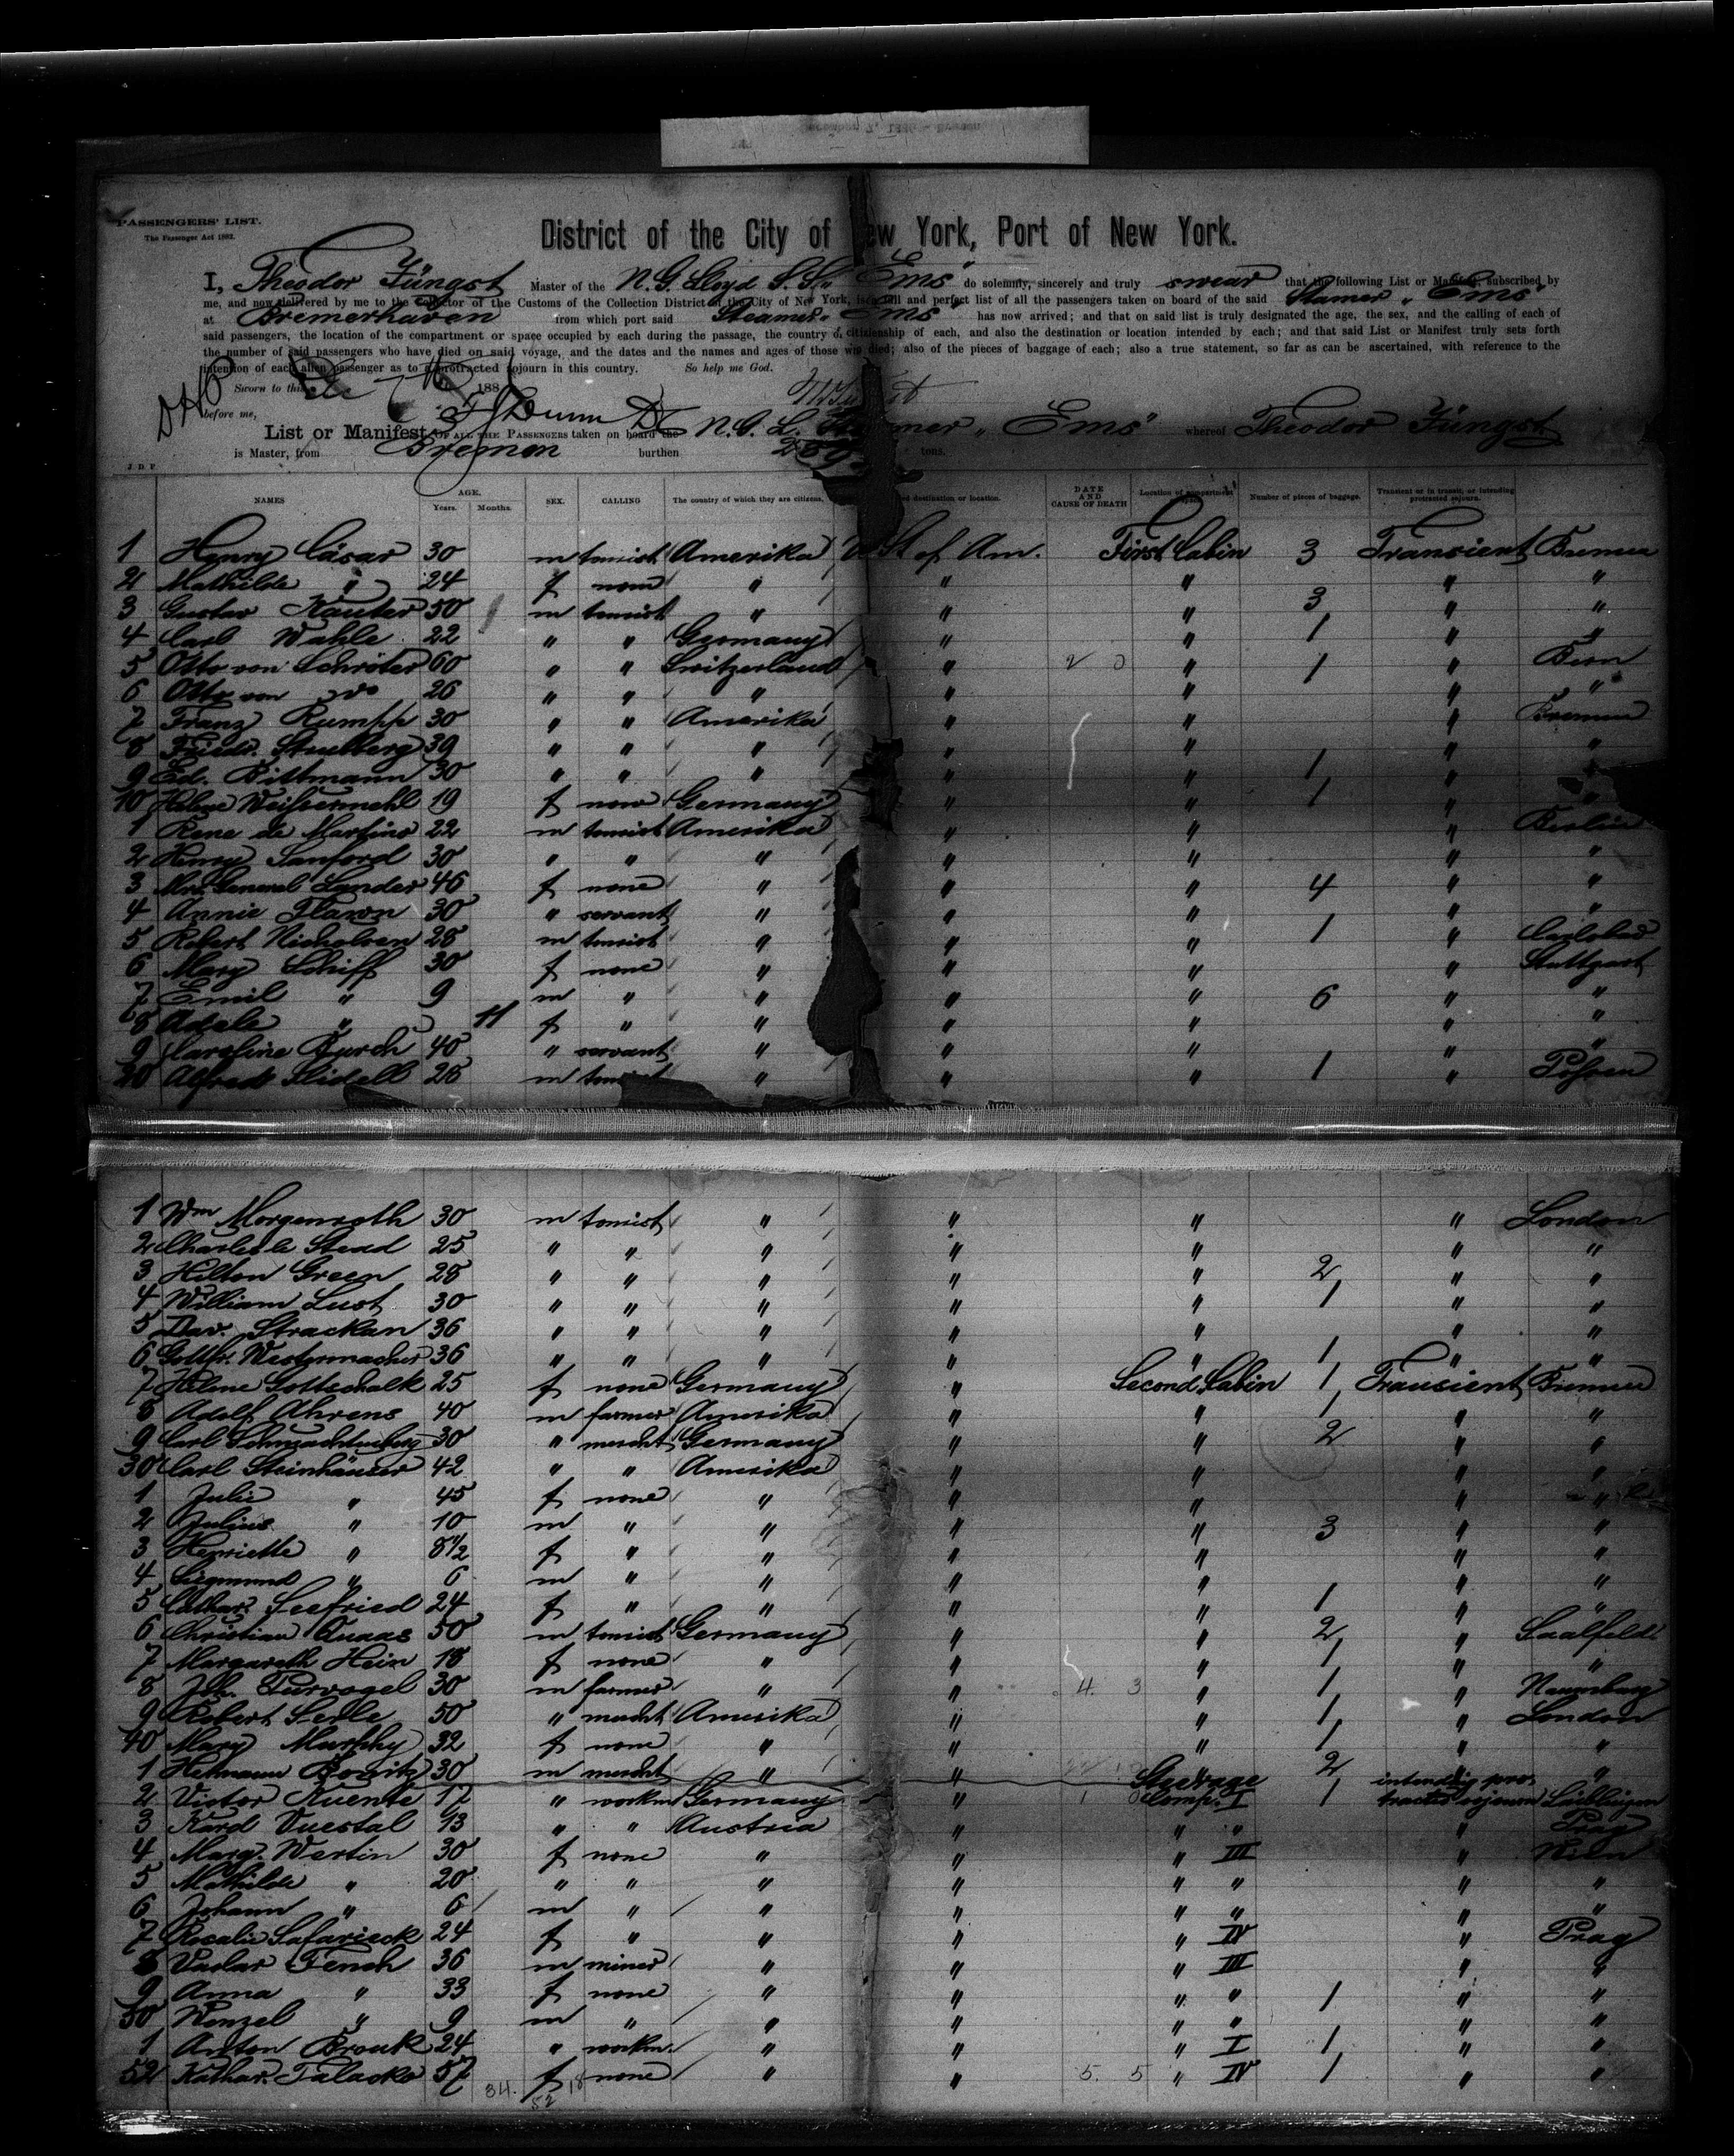 PASSENGERS' LIST.
The Passenger Act 1882.
District of the City of New York, Port of New York.
I, Theodor Jüngst Master of the N. G. Lloyd S. S. "Ems" do solemnly, sincerely and truly swear that the following List or Manifest, subscribed by
me, and now delivered by me to the Collector of the Customs of the Collection District of the City of New York, is a full and perfect list of all the passengers taken on board of the said Steamer "Ems"
at Bremerhaven from which port said Steamer "Ems" has now arrived; and that on said list is truly designated the age, the sex, and the calling of each of
said passengers, the location of the compartment or space occupied by each during the passage, the country of citizenship of each, and also the destination or location intended by each; and that said List or Manifest truly sets forth
the number of said passengers who have died on said voyage, and the dates and the names and ages of those who died; also of the pieces of baggage of each; also a true statement, so far as can be ascertained, with reference to the
intention of each alien passenger as to a protracted sojourn in this country. So help me God.
Sworn to this Dec 7th 188
before me,
List or Manifest OF ALL THE PASSENGERS taken on board the N. G. L. Steamer "Ems" whereof Theodor Jüngst
is Master, from Bremen burthen tons.
J. D. F.
NAMES AGE. Years. Months. SEX. CALLING The country of which they are citizens. destination or location. DATE AND CAUSE OF DEATH Location of compartment Number of pieces of baggage. Transient or in transit, or intending protracted sojourn.
1 Henry Cäsar 30 m tourist Amerika U St of Am. First Cabin 3 Transient Bremen
2 Mathilde " 24 f none " " " " "
3 Gustav Kauter 50 m tourist " " " 3 " "
4 Carl Wahle 22 " " Germany " " 1 " "
5 Otto von Schröter 60 " " Switzerland " 2 0 " 1 " Bern
6 Otto von do 26 " " " " " " "
7 Franz Rumpp 30 " " Amerika " " " Bremen
8 Friedr. Stuelberg 39 " " " " " " "
9 Ed. Bittmann 30 " " " " " 1 "
10 Helene Weissermehl 19 f none Germany " " 1 " "
1 Rene de Martino 22 m tourist Amerika " " " Berlin
2 Henry Sanford 30 " " " " " " "
3 Mrs. General Lander 46 f none " " " 4 " "
4 Annie Flawn 30 " servant " " " " "
5 Robert Nicholson 28 m tourist " " " 1 " Carlsbad
6 Mary Schiff 30 f none " " " " Stuttgart
7 Emil " 9 m " " " " 6 " "
8 Adele " 11 f " " " " " "
9 Caroline Burch 40 " servant " " " " "
20 Alfred Slidell 28 m tourist " " " 1 "
1 Wm Morgenroth 30 m tourist " " " " London
2 Charles Stead 25 " " " " " " "
3 Hilton Green 28 " " " " " 2 " "
4 William Lust 30 " " " " " 1 " "
5 Dav. Strackan 36 " " " " " " "
6 Gottfr. Westermacher 36 " " " " " 1 " "
7 Helene Gottschalk 25 f none Germany " Second Cabin 1 Transient Bremen
8 Adolf Ahrens 40 m farmer Amerika " " 1 " "
9 Carl 30 " mercht Germany " " 2 " "
30 Carl Steinhäuser 42 " " Amerika " " " "
1 Julie " 45 f none " " " " "
2 Julius " 10 m " " " " 3 " "
3 Henriette " 8 1/2 f " " " " " "
4 Siegmund " 6 m " " " " " "
5 Cathar. Seefried 24 f " " " " 1 " "
6 Christian Quaas 50 m tourist Germany " " 2 " Saalfeld
7 Margareth Hein 18 f none " " " 1 " "
8 Joh. Turvogel 30 m farmer " " 4. 3 " 1 " Naumburg
9 Robert Serle 50 " mercht Amerika " " 1 " London
40 Mary Murphy 32 f none " " " 1 " "
1 Hermann Bowitz 30 m mercht " " " 2 " "
2 Victor Kuente 17 " workm Germany " 1 0 Steerage Comp. I 1 intendig protracted sojourn
3 Kard Vuestal 43 " " Austria " " " " Prag
4 Marg. Wertin 30 f none " " " III " Wien
5 Mathilde " 20 " " " " " " " "
6 Johann " 6 m " " " " " " "
7 Rosalie Safarieck 24 f " " " " IV " Prag
8 Vaclav Fench 36 m miner " " " III " "
9 Anna " 33 f none " " " " 1 " "
50 Wenzel " 9 m " " " " " " "
1 Anton Brouk 24 " workm. " " " I 1 " "
52 Kathar. Palacko 57 f none " " 5. 5 " IV 1 " "
34. 18
52